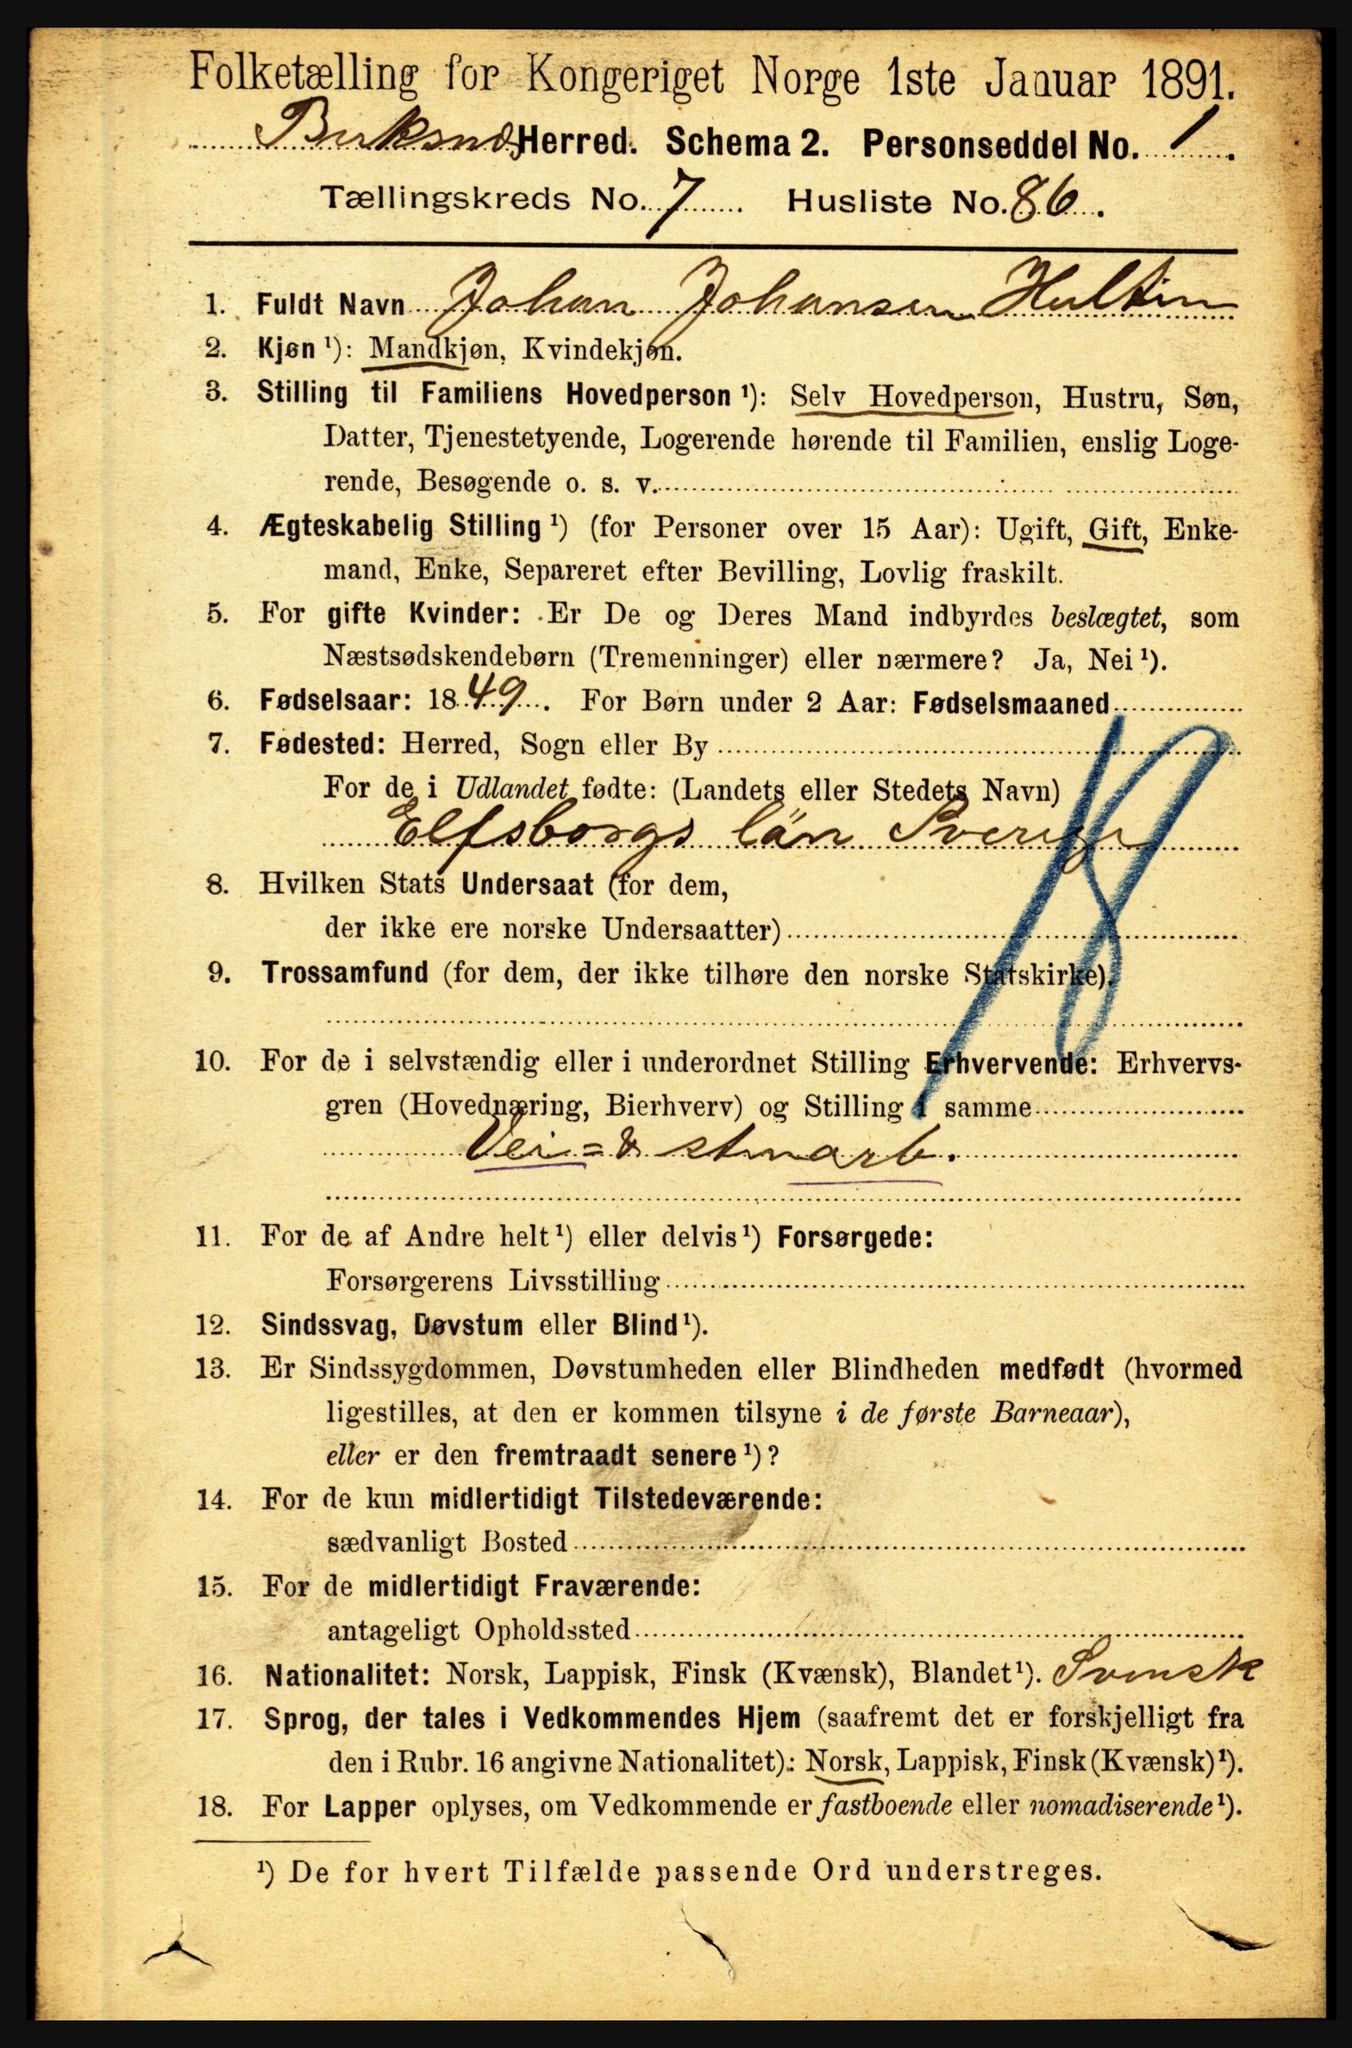 Folketælling for Kongeriget Norge 1ste Januar 1891.
Buksnæs Herred. Schema 2. Personseddel No. 1.
Tællingskreds No. 7 Husliste No. 86.
1. Fuldt Navn Johan Johansen Hultin
2. Kjøn ¹): Mandkjøn, Kvindekjøn.
3. Stilling til Familiens Hovedperson ¹): Selv Hovedperson, Hustru, Søn,
Datter, Tjenestetyende, Logerende hørende til Familien, enslig Loge-
rende, Besøgende o. s. v.
4. Ægteskabelig Stilling ¹) (for Personer over 15 Aar): Ugift, Gift, Enke-
mand, Enke, Separeret efter Bevilling, Lovlig fraskilt.
5. For gifte Kvinder: Er De og Deres Mand indbyrdes beslægtet, som
Næstsødskendebørn (Tremenninger) eller nærmere? Ja, Nei ¹).
6. Fødselsaar: 1849. For Børn under 2 Aar: Fødselsmaaned
7. Fødested: Herred, Sogn eller By
For de i Udlandet fødte: (Landets eller Stedets Navn)
Elfsborgs län Sverige
18
8. Hvilken Stats Undersaat (for dem,
der ikke ere norske Undersaatter)
9. Trossamfund (for dem, der ikke tilhøre den norske Statskirke).
10. For de i selvstændig eller i underordnet Stilling Erhvervende: Erhvervs-
gren (Hovednæring, Bierhverv) og Stilling i samme
Vei= & stenarb.
11. For de af Andre helt ¹) eller delvis ¹) Forsørgede:
Forsørgerens Livsstilling
12. Sindssvag, Døvstum eller Blind ¹).
13. Er Sindssygdommen, Døvstumheden eller Blindheden medfødt (hvormed
ligestilles, at den er kommen tilsyne i de første Barneaar),
eller er den fremtraadt senere ¹)?
14. For de kun midlertidigt Tilstedeværende:
sædvanligt Bosted
15. For de midlertidigt Fraværende:
antageligt Opholdssted
16. Nationalitet: Norsk, Lappisk, Finsk (Kvænsk), Blandet ¹). Svensk
17. Sprog, der tales i Vedkommendes Hjem (saafremt det er forskjelligt fra
den i Rubr. 16 angivne Nationalitet): Norsk, Lappisk, Finsk (Kvænsk) ¹).
18. For Lapper oplyses, om Vedkommende er fastboende eller nomadiserende ¹).
¹) De for hvert Tilfælde passende Ord understreges.